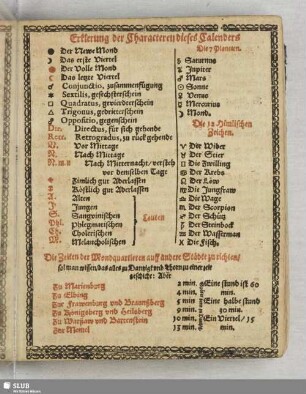 Erklerung der Characteren dieses Calenders
● Der Newe Mond
☽ Das erste Viertel
Der Volle Mond
☾ Das letzte Viertel
☌ Conjunctio, zusammenfügung
⚹ Sextilis, gesechsterschein
□ Quadratus, gevierdterschein
△ Trigonus, gedritterschein
☍ Oppositio, gegenschein
Dre. Directus, für sich gehende
Retr. Retrogradus, zu rück gehende
V. Vor Mittage
N. Nach Mittage
N.m.n Nach Mitternacht/versteh
vor demselben Tage
Zimlich gut Aderlassen
Köstlich gut Aderlassen
A. Alten
J. Jungen
S. Sangvinischen
Phl. Phlegmatischen
Ch. Cholerischen
M. Melancholischen
Leuten
Die 7 Planeten.
♄ Saturnus
♃ Jupiter
♂ Mars
☉ Sonne
♀ Venus
☿ Mercurius
☽ Mond.
Die 12 Himlischen
Zeichen.
♈ Der Wider
♉ Der Stier
♊ Die Zwilling
♋ Der Krebs
♌ Der Löw
♍ Die Jungfraw
♎ Die Wage
♏ Der Scorpion
♐ Der Schütz
♑ Der Steinbock
♒ Der Wasserman
♓ Die Fisch.
Die Zeiten der Mondquartieren auff andere Städte zu richten/
sol man wissen, das alles zu Dantzig und Thorn zu einer zeit
geschicht: Aber
Zu Marienburg 2 min.
Zu Elbing 4 min.
Zur Frawenburg und Braunsberg 5 min.
Zu Königsberg und Heilsberg 9 min.
Zu Warschaw und Bartenstein 10 min.
Zur Memel 13 min.
Eine stund ist 60
min.
Eine halbe stund
30 min.
Ein Viertel / 15
min.
SLUB